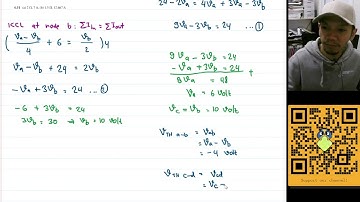 KCL at node b : ΣIin = ΣIout
( (Va - Vb)/4 + 6 = Vb/2 ) 4
Va - Vb + 24 = 2Vb
-Va + 3Vb = 24 ... ②
-6 + 3Vb = 24
3Vb = 30 → Vb = 10 Volt
24 - 2Va = 4Va + 3Va - 3Vb
9Va - 3Vb = 24 ... ①
9Va - 3Vb = 24
-Va + 3Vb = 24 +
8Va = 48
Va = 6 Volt
Vc = Vb = 10 Volt
VTH a-b = Vab
= Va - Vb
= -4 Volt
VTH c-d = Vcd
= Vc -
Support our channel!